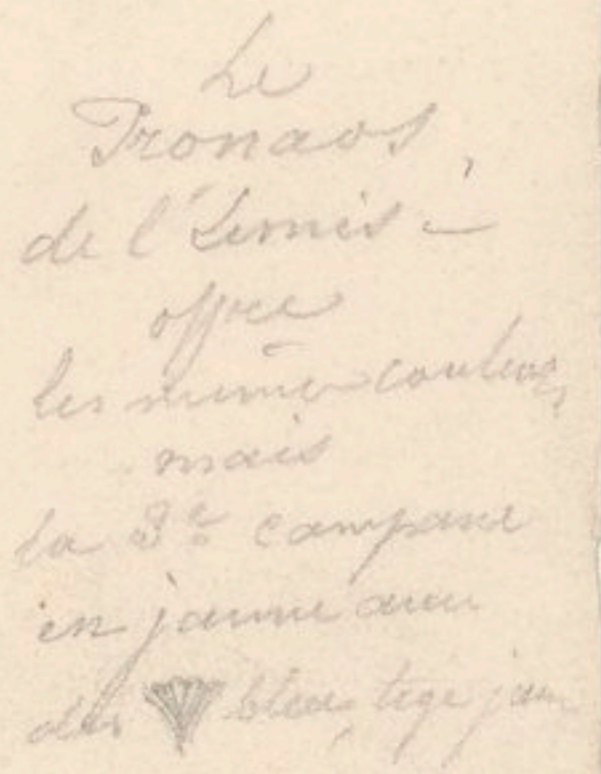 Le
Pronaos
de l'
offre
les mêmes couleurs
mais
la 3e campane
en jaune avec
des bleus, tige jau